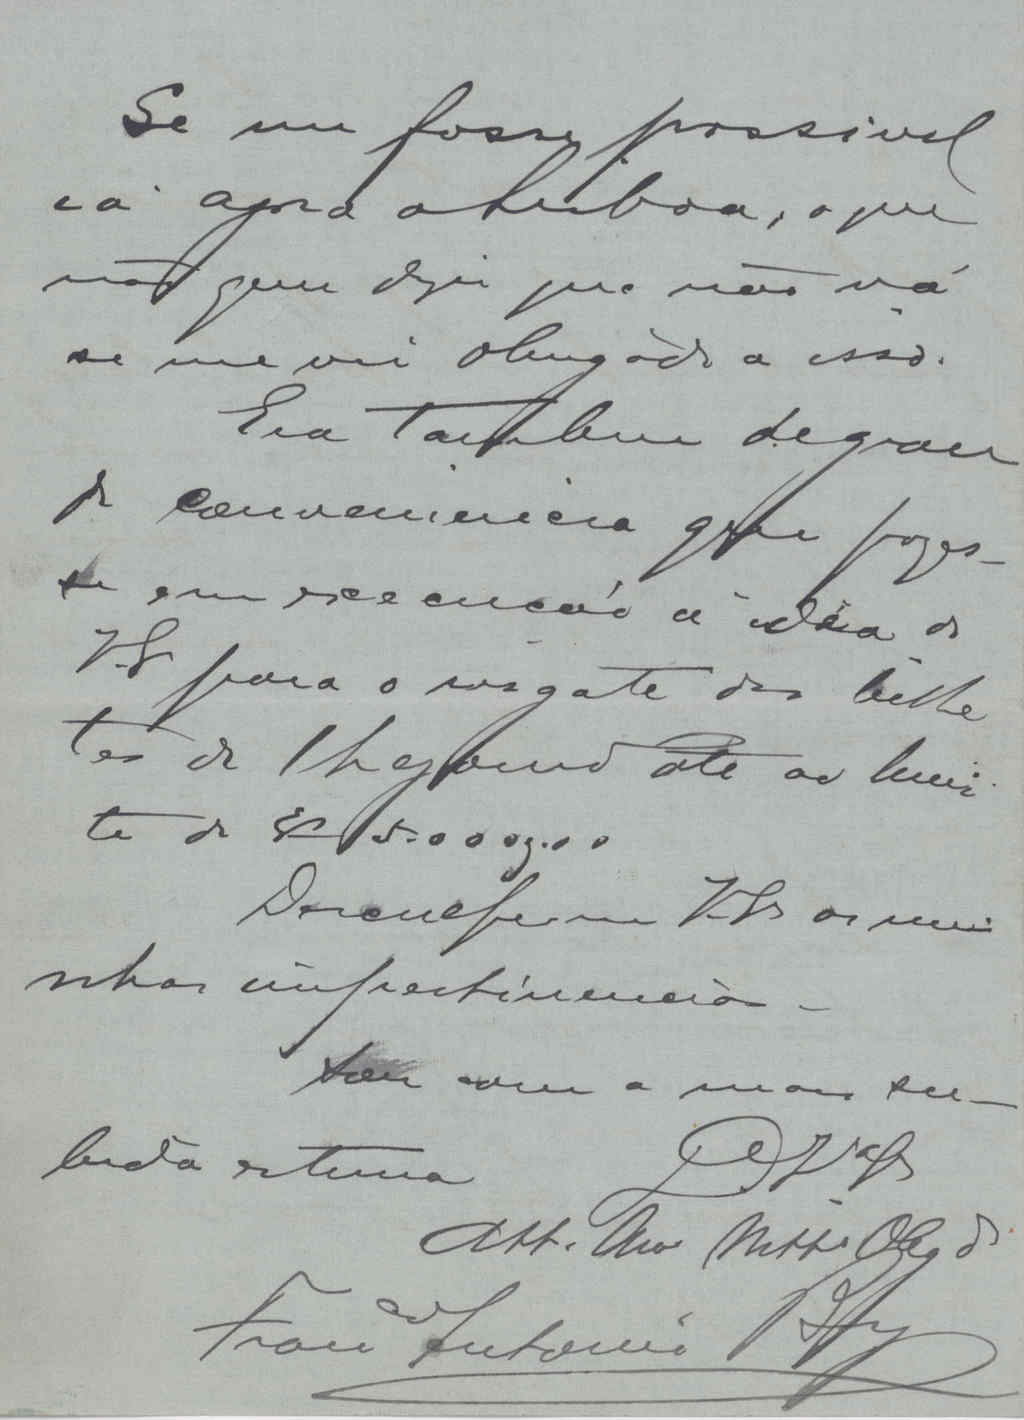 Se me fosse possivel
ia agora a Lisboa, o que
não quer dizer que não vá
se me vir obrigado a isso.
Era tambem de gran
de conveniencia que pozes-
se em execução a idéa de
V.S. para o resgate dos bilhe
tes de 1 até ao limi
te de 5.000
Desculpe-me V.S. as mi
nhas impertinencias -
Sou com a mais su-
bida estima De V.
Att. Ven Obgdo
Franco Antonio